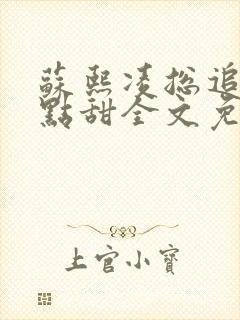 蘇熙凌總追
點甜全文免
上官小寶